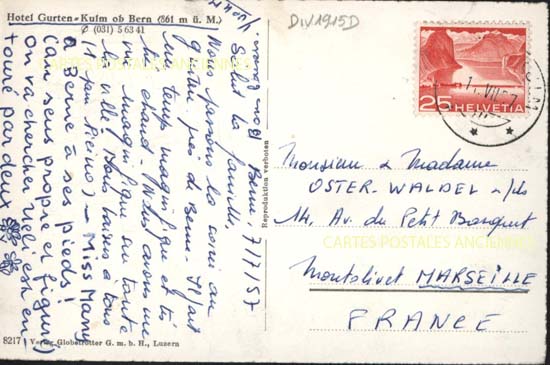 Hotel Gurten-Kulm ob Bern (861 m ü. M.)
∅ (031) 5 63 41
DIV1915D
Bern, 7/7/57
Salut la famille,
Nous passons la soirée au
gurten, près de Bern. Il fait
un temps magnifique et très
chaud. Nous avons une
vue magnifique sur toute
la ville. Bons baisers à tous
Miss Many
a Berne à ses pieds!
(au sens propre et figuré)
on va chercher
tour par deux
Reproduktion verboten
25 HELVETIA
Monsieur & Madame
OSTER-WALDEL
14, Av. du Petit Bosquet
Montolivet MARSEILLE
FRANCE
CARTES POSTALES ANCIENNES
8217 Verlag Globetrotter G. m. b. H., Luzern